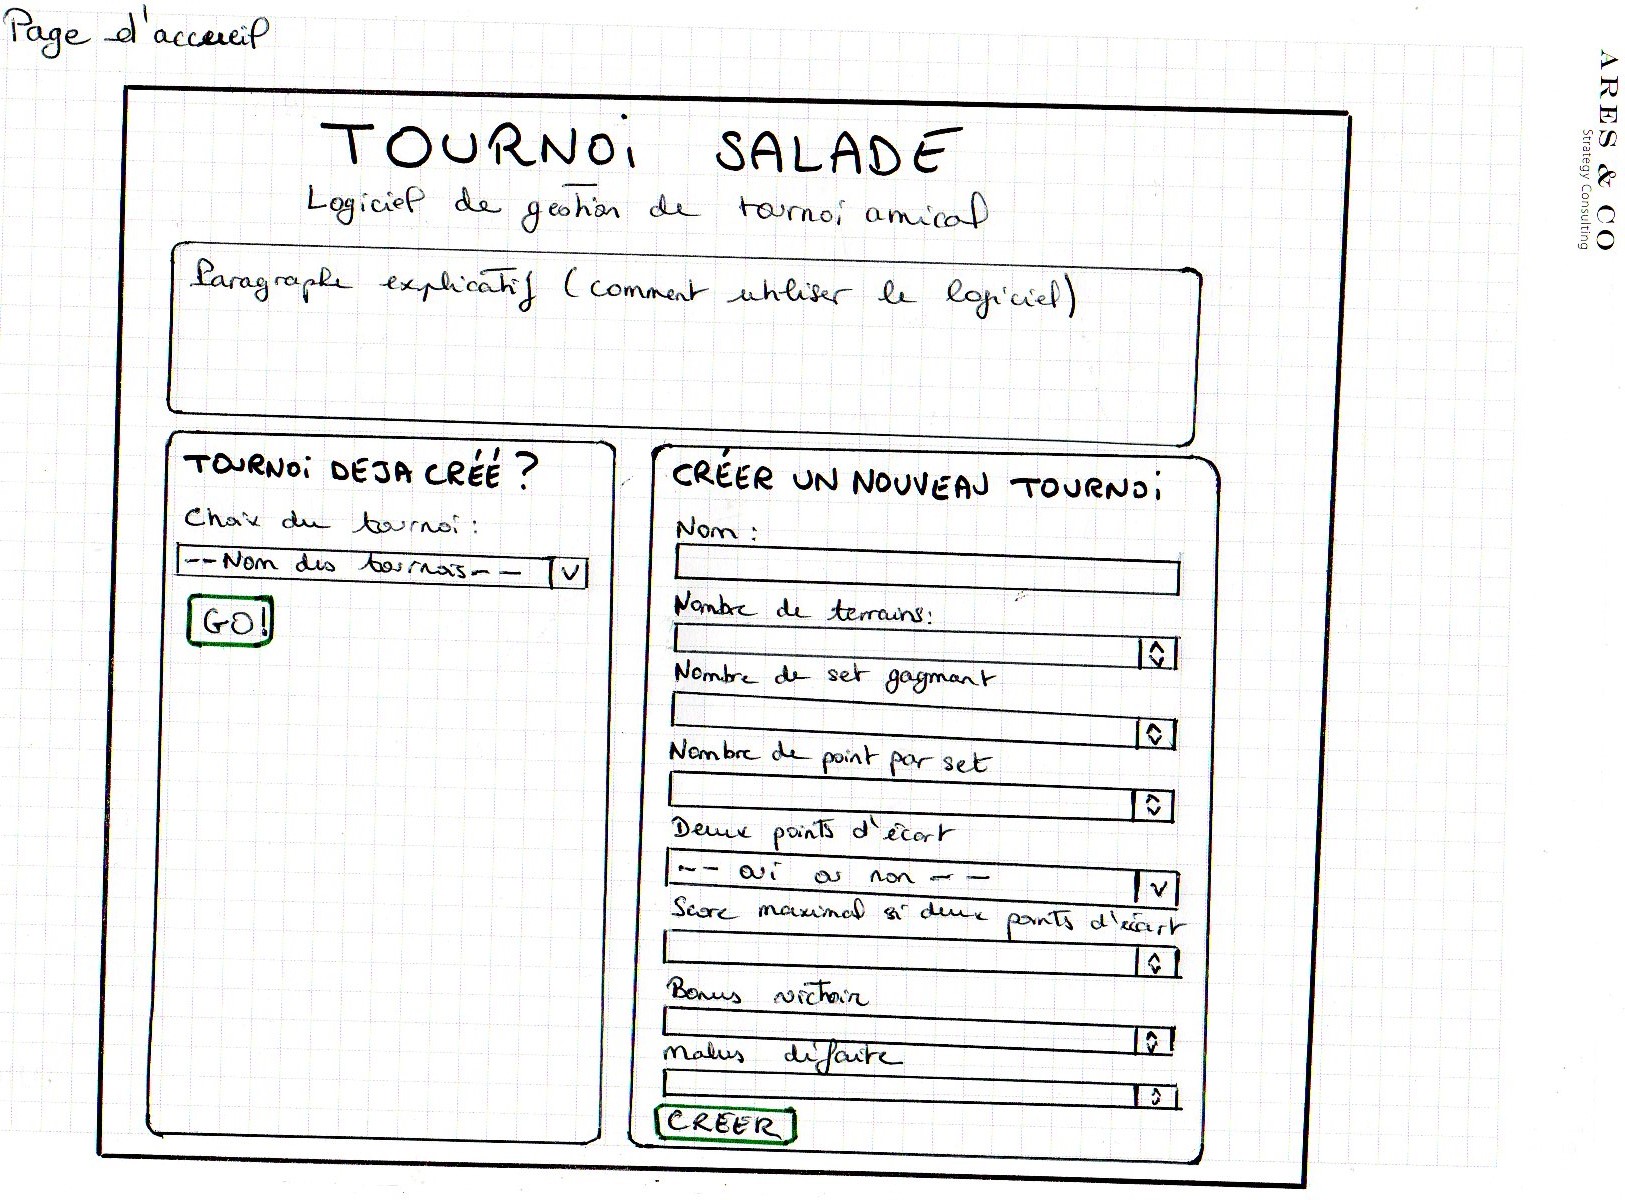 Page d'accueil
ARES & CO
Strategy Consulting
TOURNOI SALADE
Logiciel de gestion de tournoi amical
Paragraphe explicatif (comment utiliser le logiciel)
TOURNOI DEJA CRÉÉ ?
Choix du tournoi :
--Nom des tournois--
GO!
CRÉER UN NOUVEAU TOURNOI
Nom :
Nombre de terrains:
Nombre de set gagnant
Nombre de point par set
Deux points d'écart
-- oui ou non --
Score maximal si deux points d'écart
Bonus victoire
Malus défaite
CREER